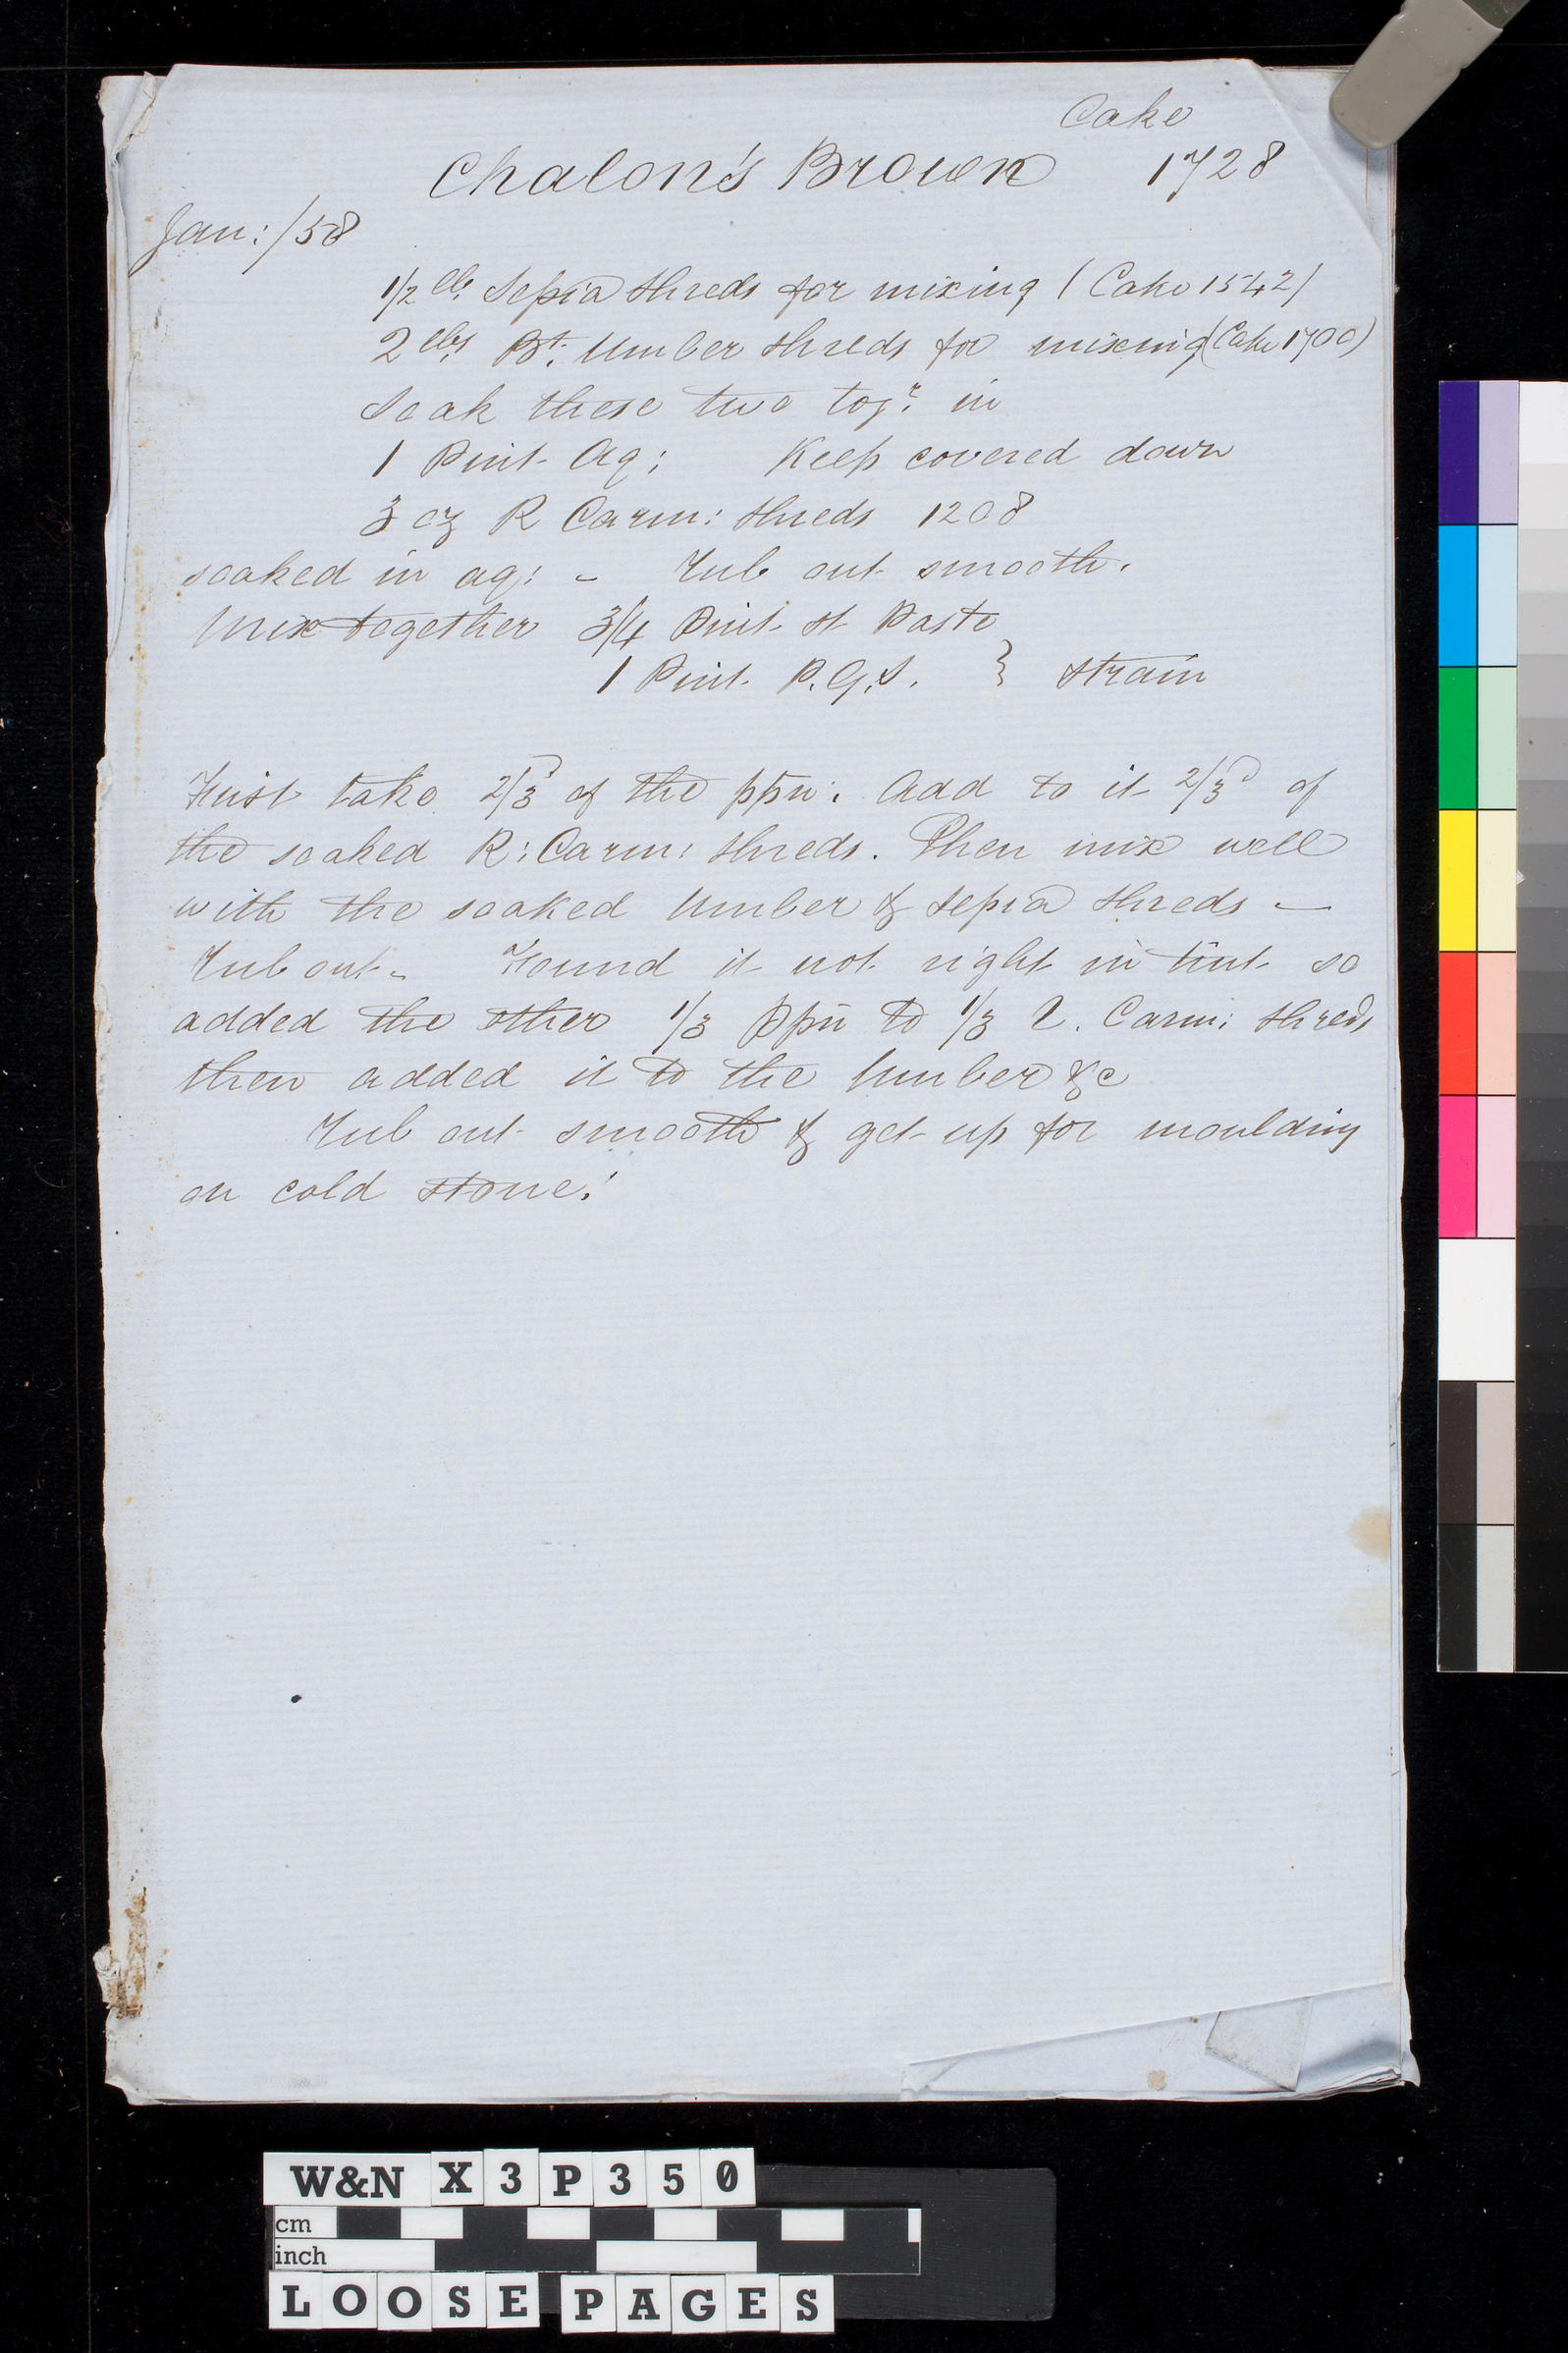 Cake
Chalon's Brown 1728
Jan:/58
1/2 lb. Sepia shreds for mixing (Cake 1542)
2 lbs Bt. Umber shreds for mixing (Cake 1700)
Soak these two togr. in
1 Pint Aq: Keep covered down
3 oz R Carm: shreds 1208
soaked in aq: - Rub out smooth.
Mix together 3/4 Pint st Paste
1 Pint P.G.S. } strain
First take 2/3 of the ppn: Add to it 2/3 of
the soaked R: Carm: shreds. Then mix well
with the soaked Umber & Sepia shreds —
Rub out - Found it not right in tint so
added the other 1/3 ppn to 1/3 R. Carm: shreds
then added it to the Umber &c
Rub out smooth & get up for moulding
on cold stone.
W&N X3P350
cm
inch
LOOSE PAGES